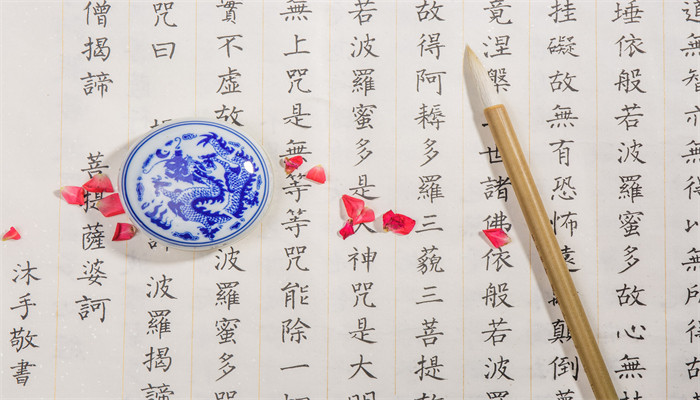 道無智亦無得以無所得故
埵依般若波羅蜜多故心無挂
挂礙故無有恐怖遠顛倒夢
竟涅槃世諸佛依般若波
故得阿耨多羅三藐三菩提故
若波羅蜜多是大神咒是大明
無上咒是無等等咒能除一切
實不虛故波羅蜜多咒
咒曰揭諦波羅揭諦
僧揭諦 菩提薩婆訶
沐手敬書